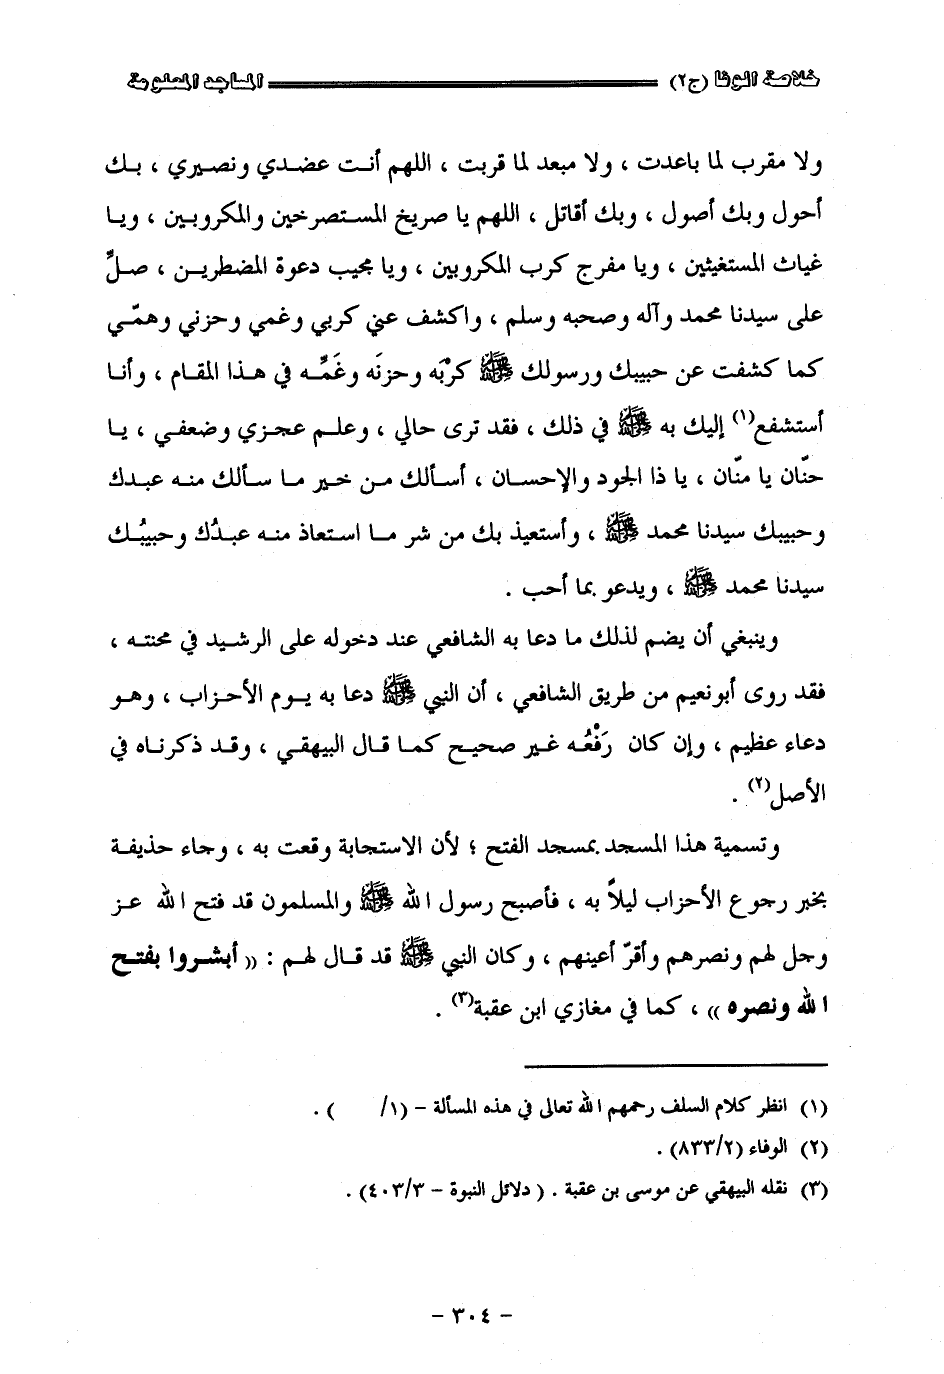 خلاصة الوفا (ج٢) المساجد المعلومة
ولا مقرب لما باعدت ، ولا مبعد لما قربت ، اللهم أنت عضدي ونصيري ، بك
أحول وبك أصول ، وبك أقاتل ، اللهم يا صريخ المستصرخين والمكروبين ، ويا
غياث المستغيثين ، ويا مفرج كرب المكروبين ، ويا مجيب دعوة المضطرين ، صلِّ
على سيدنا محمد وآله وصحبه وسلم ، واكشف عني كربي وغمي وحزني وهمّي
كما كشفت عن حبيبك ورسولك ﷺ كرْبَه وحزنَه وغَمِّه في هذا المقام ، وأنا
أستشفع(١) إليك به ﷺ في ذلك ، فقد ترى حالي ، وعلم عجزي وضعفي ، يا
حنّان يا منّان ، يا ذا الجود والإحسان ، أسألك من خير ما سألك منه عبدك
وحبيبك سيدنا محمد ﷺ ، وأستعيذ بك من شر ما استعاذ منه عبدُك وحبيبُك
سيدنا محمد ﷺ ، ويدعو بما أحب .
وينبغي أن يضم لذلك ما دعا به الشافعي عند دخوله على الرشيد في محنته ،
فقد روى أبونعيم من طريق الشافعي ، أن النبي ﷺ دعا به يوم الأحزاب ، وهو
دعاء عظيم ، وإن كان رَفْعُه غير صحيح كما قال البيهقي ، وقد ذكرناه في
الأصل(٢) .
وتسمية هذا المسجد بمسجد الفتح ؛ لأن الاستجابة وقعت به ، وجاء حذيفة
بخبر رجوع الأحزاب ليلاً به ، فأصبح رسول الله ﷺ والمسلمون قد فتح الله عز
وجل لهم ونصرهم وأقرّ أعينهم ، وكان النبي ﷺ قد قال لهم : (( أبشروا بفتح
الله ونصره )) ، كما في مغازي ابن عقبة(٣) .
(١) انظر كلام السلف رحمهم الله تعالى في هذه المسألة - (١/ ) .
(٢) الوفاء (٨٣٣/٢) .
(٣) نقله البيهقي عن موسى بن عقبة . ( دلائل النبوة - ٤٠٣/٣) .
- ٣٠٤ -